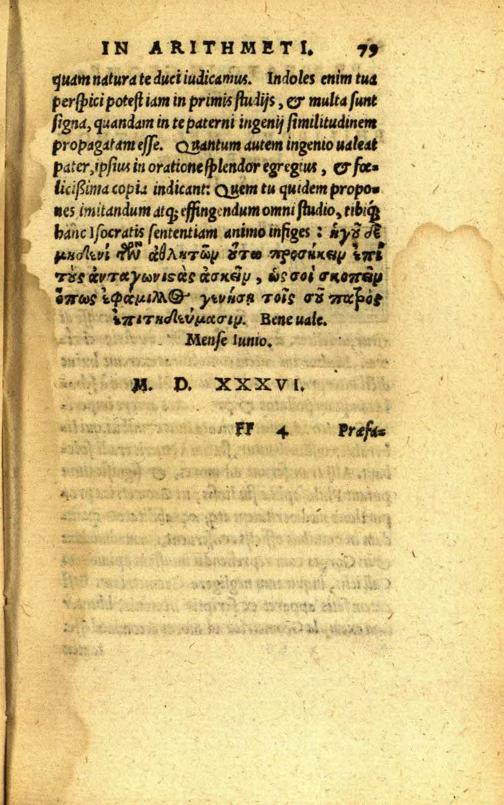 IN ARITHMETI. 79
quam natura te duci iudicamus. Indoles enim tua
perspici potest iam in primis studijs, & multa sunt
signa, quandam in te paterni ingenij similitudinem
propagatam esse. Quantum autem ingenio ualeat
pater, ipsius in oratione splendor egregius, & fœ-
licissima copia indicant: Quem tu quidem propo-
nes imitandum atq; effingendum omni studio, tibiq;
hanc Isocratis sententiam animo infiges: ἡγοῦ δὲ
μηδενὶ τῶν ἀθλητῶν οὕτω προσήκειν ἐπὶ
τοὺς ἀνταγωνιστὰς ἀσκεῖν, ὡς σοὶ σκοπεῖν
ὅπως ἐφάμιλλος γενήσῃ τοῖς σοῦ πατρὸς
ἐπιτηδεύμασιν. Bene uale.
Mense Iunio.
M. D. XXXVI.
FF 4 Præfa-